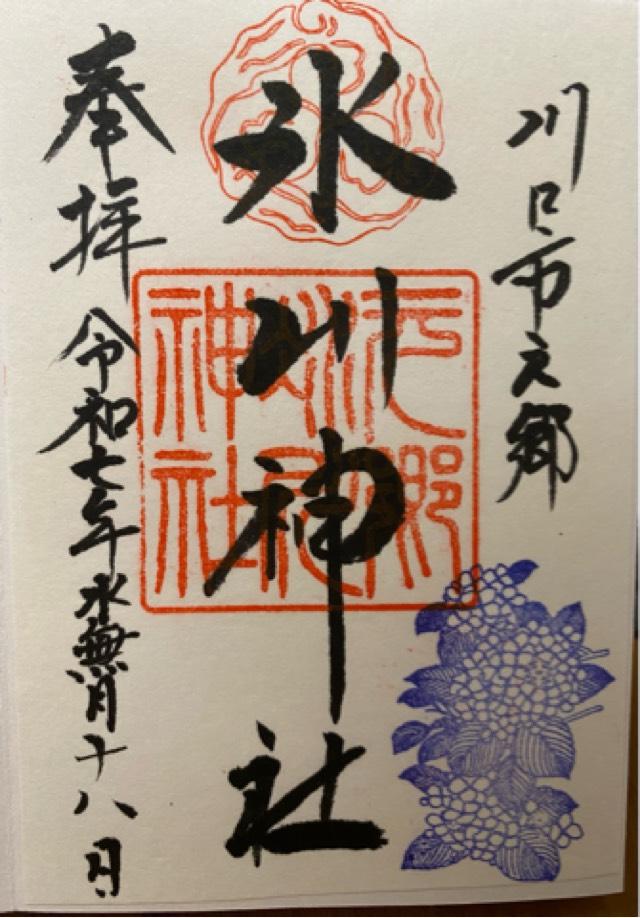 川口市元郷
氷川神社
奉拝 令和七年水無月十八日
元郷
神社